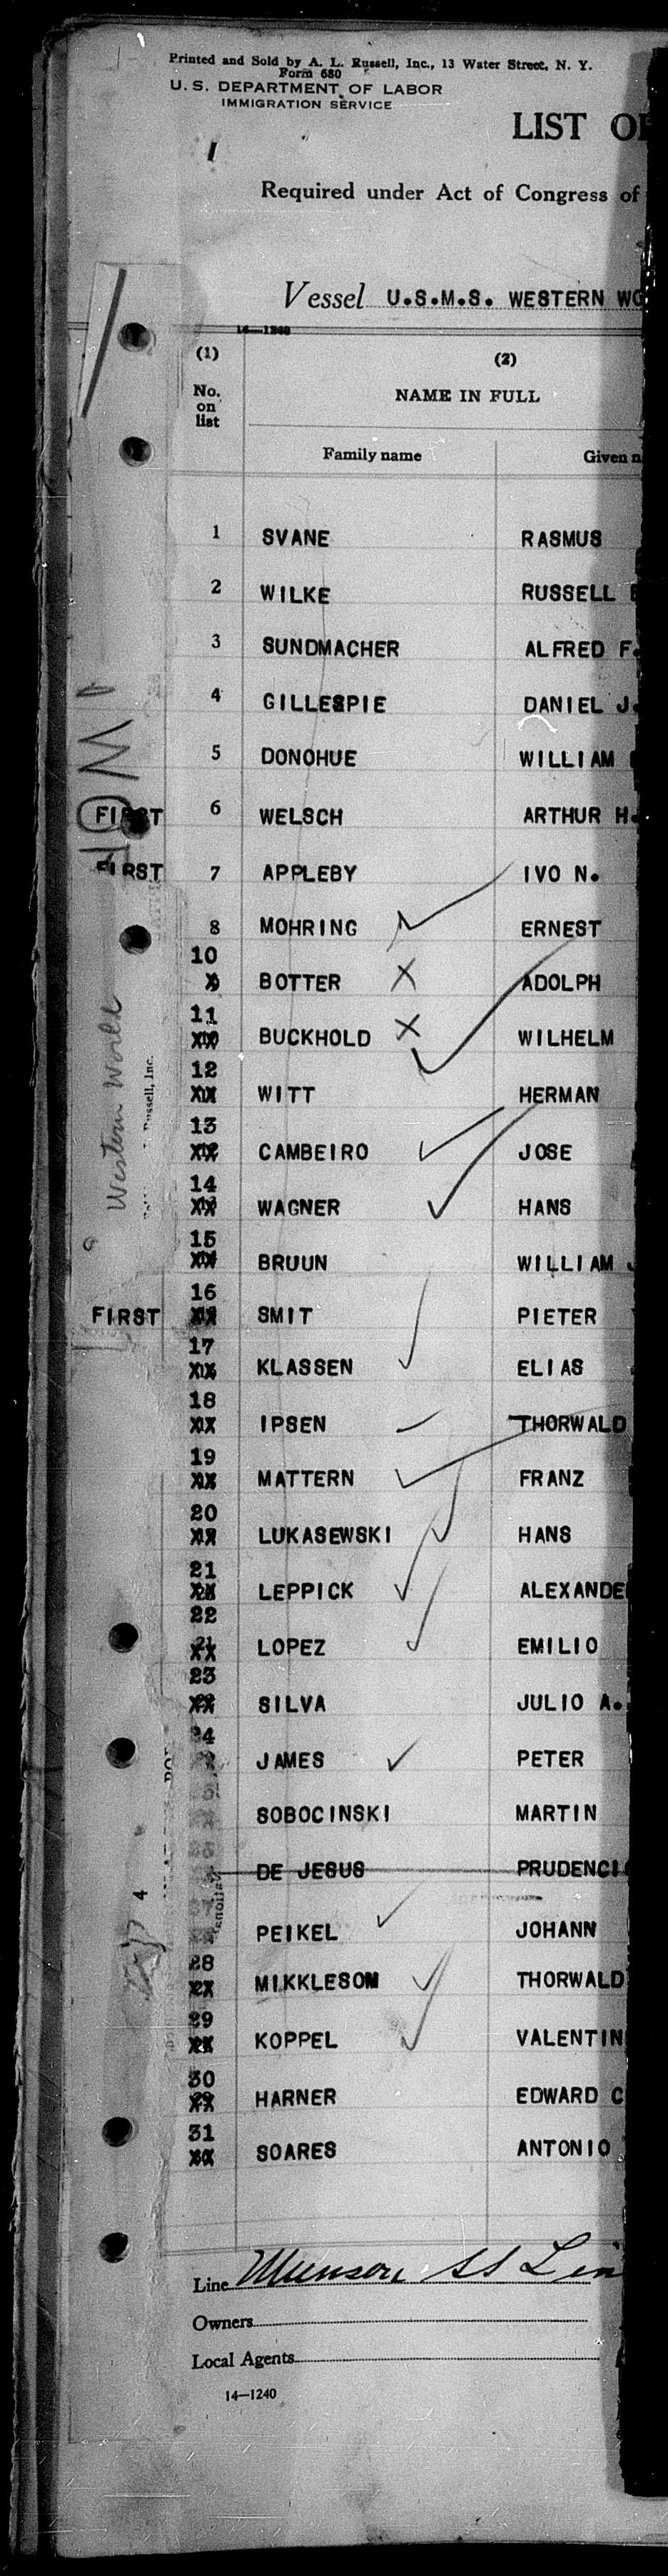 Printed and Sold by A. L. Russell, Inc., 13 Water Street, N. Y.
Form 680
U. S. DEPARTMENT OF LABOR
IMMIGRATION SERVICE
LIST OF
Required under Act of Congress of
Vessel U.S.M.S. WESTERN WO
14—1240
(1) (2)
No. on list NAME IN FULL
Family name Given n
1 SVANE RASMUS
2 WILKE RUSSELL
3 SUNDMACHER ALFRED F.
4 GILLESPIE DANIEL J.
5 DONOHUE WILLIAM
FIRST 6 WELSCH ARTHUR H.
FIRST 7 APPLEBY IVO N.
8 MOHRING ERNEST
10 BOTTER X ADOLPH
11 BUCKHOLD X WILHELM
12 WITT HERMAN
13 CAMBEIRO JOSE
14 WAGNER HANS
15 BRUUN WILLIAM
FIRST 16 SMIT PIETER
17 KLASSEN ELIAS
18 IPSEN THORWALD
19 MATTERN FRANZ
20 LUKASEWSKI HANS
21 LEPPICK ALEXANDE
22 LOPEZ EMILIO
23 SILVA JULIO A.
24 JAMES PETER
SOBOCINSKI MARTIN
DE JESUS PRUDENCI
PEIKEL JOHANN
28 MIKKLESON THORWALD
29 KOPPEL VALENTIN
30 HARNER EDWARD C
31 SOARES ANTONIO
Line Munson SS Lin
Owners
Local Agents
14—1240
Western World
Russell, Inc.
4